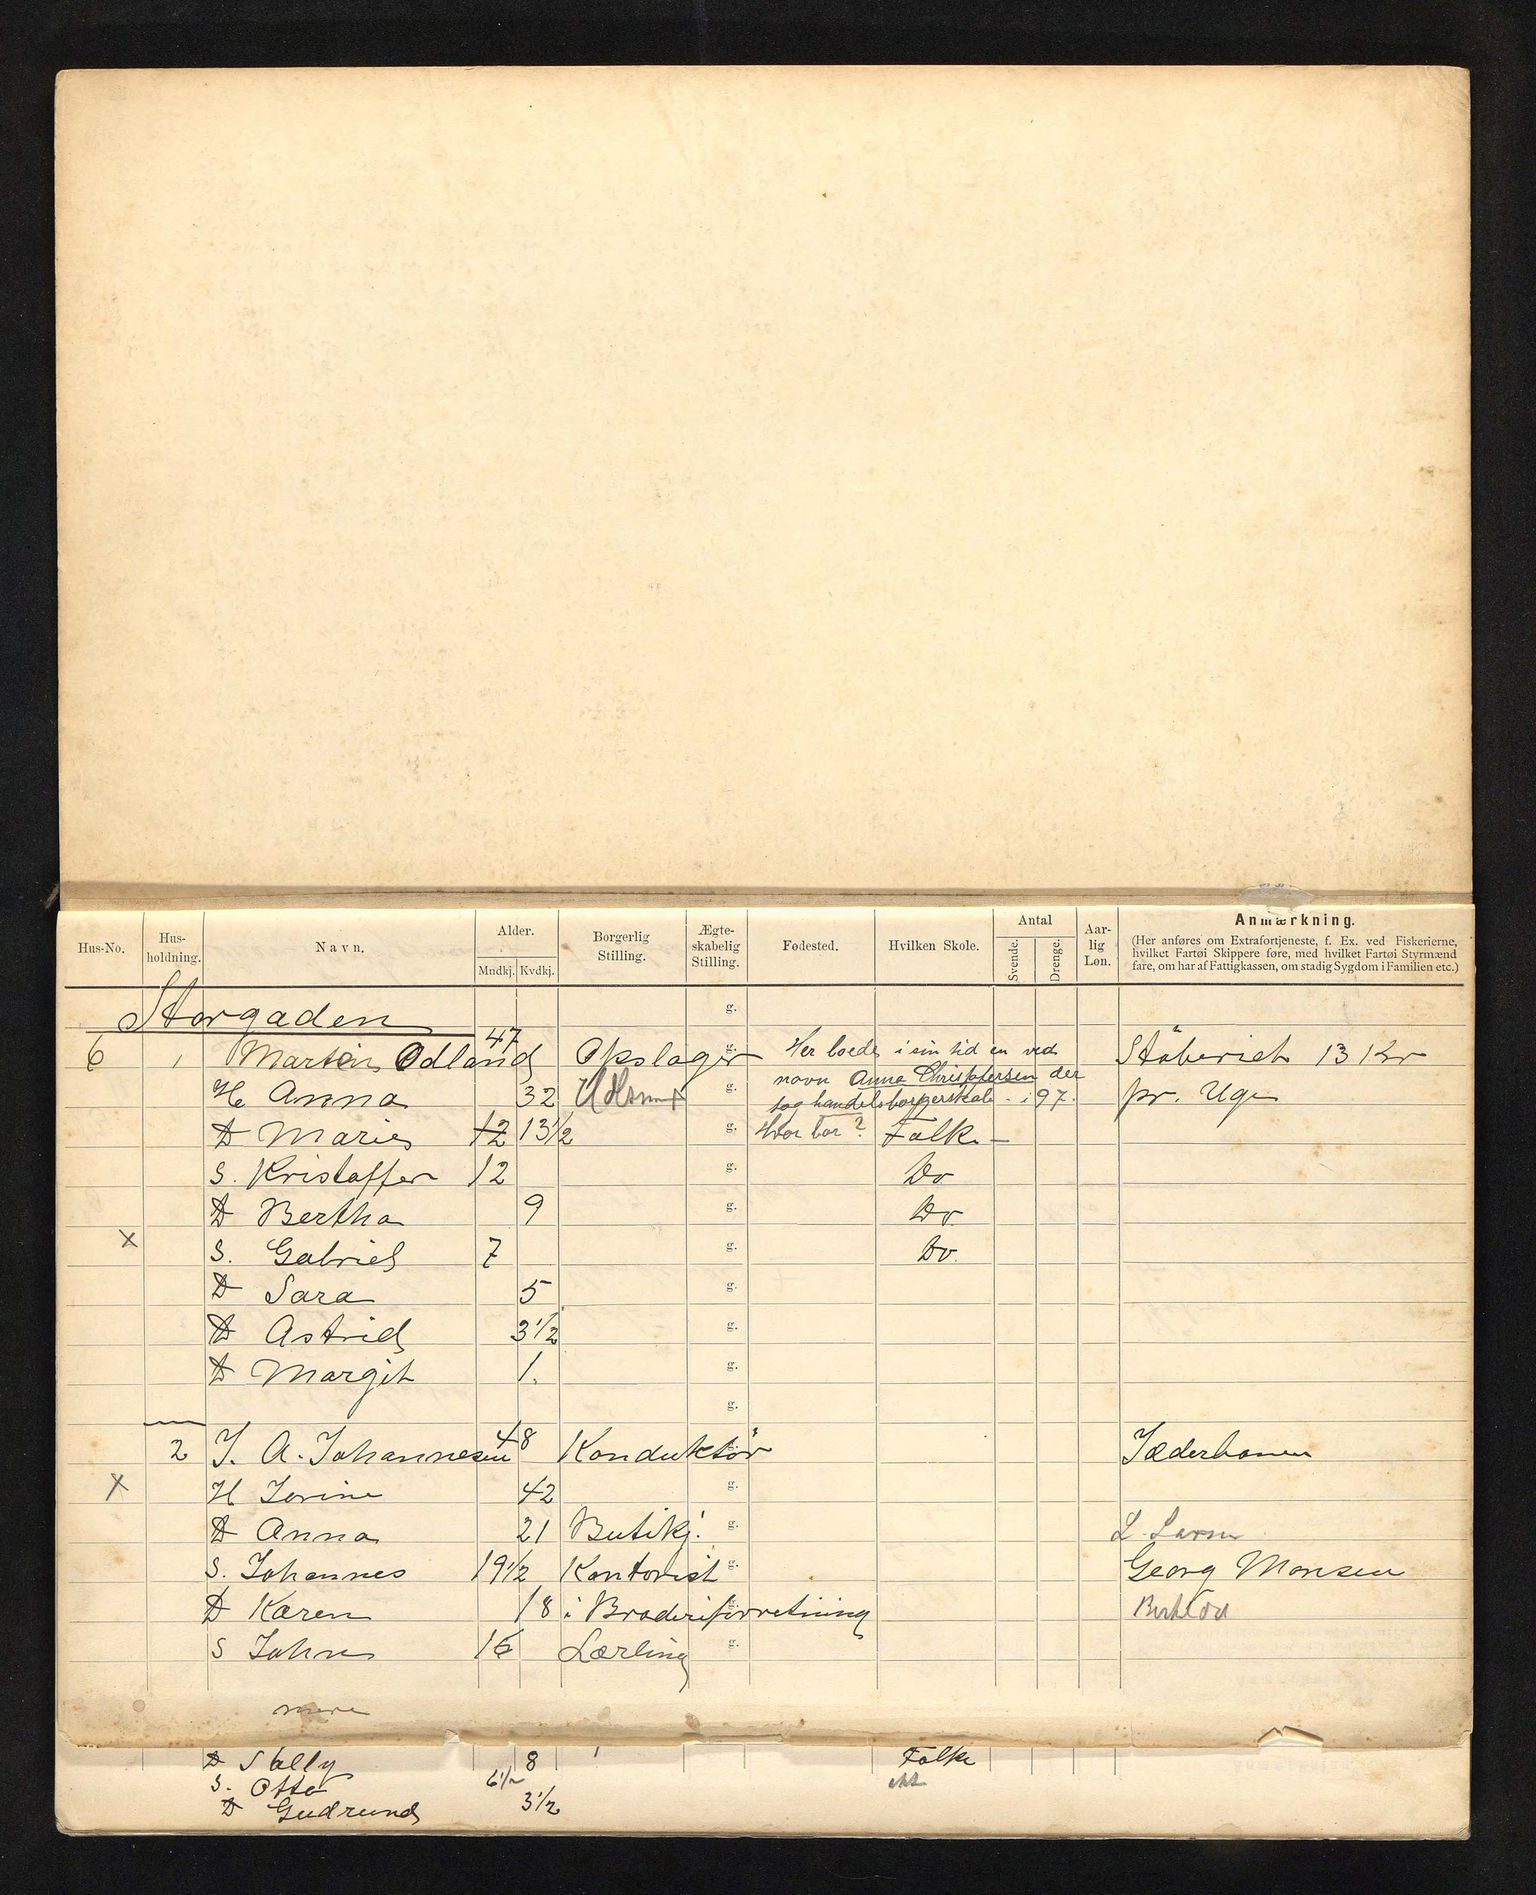 Hus-No. Hus-holdning. Navn. Alder. Mndkj. Kvdkj. Borgerlig Stilling. Ægte-skabelig Stilling. Fødested. Hvilken Skole. Antal Svende. Drenge. Aar-lig Løn. Anmærkning.
(Her anføres om Extrafortjeneste, f. Ex. ved Fiskerierne,
hvilket Fartøi Skippere føre, med hvilket Fartøi Styrmænd
fare, om har af Fattigkassen, om stadig Sygdom i Familien etc.)
Storgaden g.
6 1 Martin Odland 47 Opslager g. Støberiet 13 Kr
Her boede i sin tid en ved
navn Anna Christophersen der
tog handelsborgerskab i 97.
Hvor bor?
H Anna 32 g. pr. Uge
D Marie 12 13½ g. Folke
S. Kristoffer 12 g. Do
D Bertha 9 g. Do
x S. Gabriel 7 g. Do.
D Sara 5 g.
D Astrid 3½ g.
D Margit 1. g.
g.
2 J. A. Johannesen 48 Konduktør g. Jæderbanen
x H Jorine 42 g.
D Anna 21 Butikj. g. L. Larsen
S. Johannes 19½ Kontorist g. Georg Monsen
D Karen 18 i Broderiforretning g.
S John 16 Lærling g.
mere
D Sally 8 Folke
S. Otto 6½
D Gudrund 3½